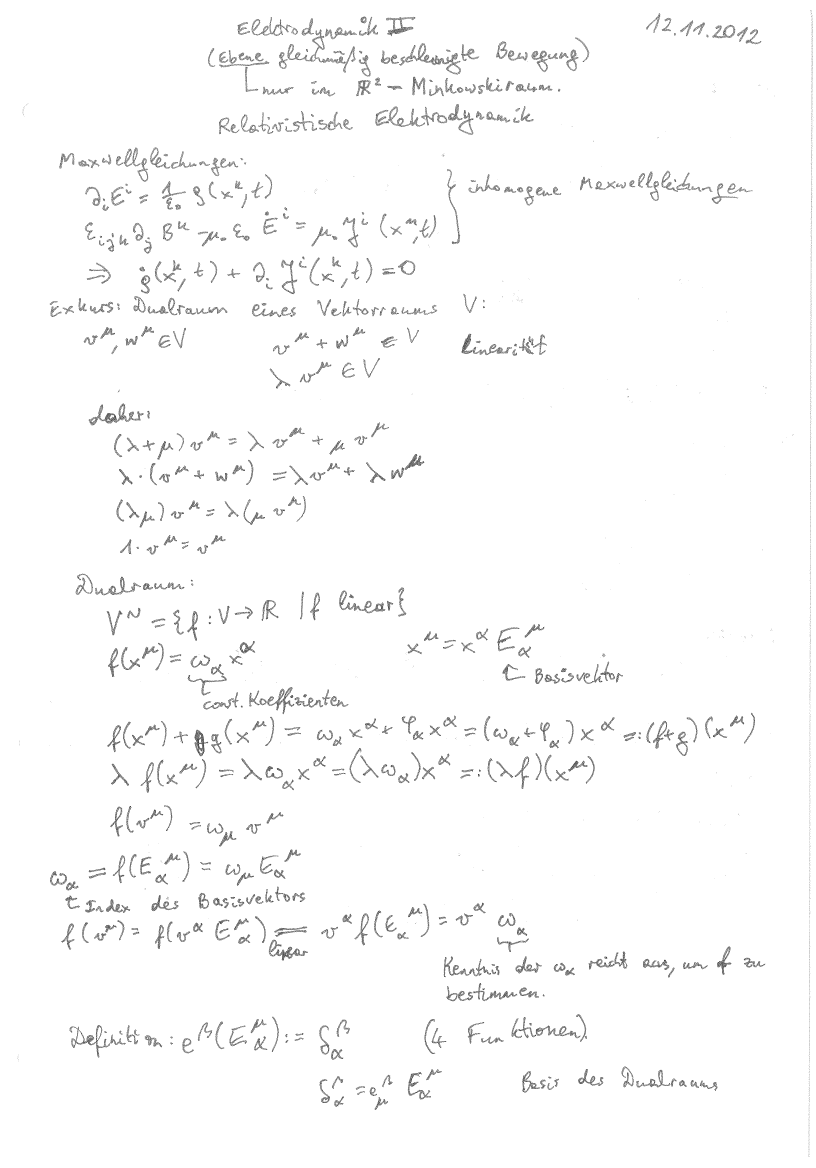 Elektrodynamik II 12.11.2012
(Ebene gleichmäßig beschleunigte Bewegung)
nur im ℝ² - Minkowskiraum.
Relativistische Elektrodynamik
Maxwellgleichungen:
∂ᵢEⁱ = 1/ε₀ ρ(xᵏ,t)
εᵢⱼₖ ∂ⱼ Bᵏ - μ₀ ε₀ Ėⁱ = μ₀ Jⁱ (xᵐ,t) } inhomogene Maxwellgleichungen
⇒ ρ̇(xᵏ, t) + ∂ᵢ Jⁱ(xᵏ, t) = 0
Exkurs: Dualraum eines Vektorraums V:
v^μ, w^μ ∈ V v^μ + w^μ ∈ V Linearität
λ v^μ ∈ V
daher:
(λ+μ) v^μ = λ v^μ + μ v^μ
λ·(v^μ + w^μ) = λv^μ + λw^μ
(λμ) v^μ = λ(μ v^μ)
1·v^μ = v^μ
Dualraum:
V^~ = {f : V → ℝ | f linear}
f(x^μ) = ω_α x^α x^μ = x^α E_α^μ
Basisvektor
const. Koeffizienten
f(x^μ) + g(x^μ) = ω_α x^α + φ_α x^α = (ω_α + φ_α) x^α =: (f+g)(x^μ)
λ f(x^μ) = λω_α x^α = (λω_α)x^α =: (λf)(x^μ)
f(v^μ) = ω_μ v^μ
ω_α = f(E_α^μ) = ω_μ E_α^μ
Index des Basisvektors
f(v^μ) = f(v^α E_α^μ) = v^α f(E_α^μ) = v^α ω_α
linear
Kenntnis der ω_α reicht aus, um f zu
bestimmen.
Definition: e^β(E_α^μ) := δ_α^β (4 Funktionen).
δ_α^β = e_μ^β E_α^μ Basis des Dualraums